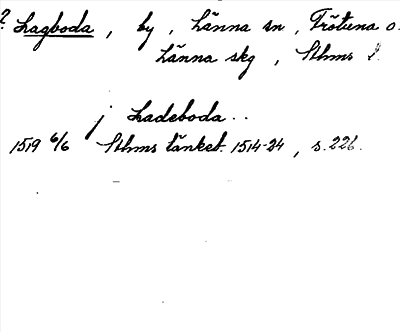 ? Lagboda, by, Länna sn, Frötuna o.
Länna skg, Sthms l.
j Ladeboda..
1519 6/6 Sthms tänkeb. 1514-24, s. 226.